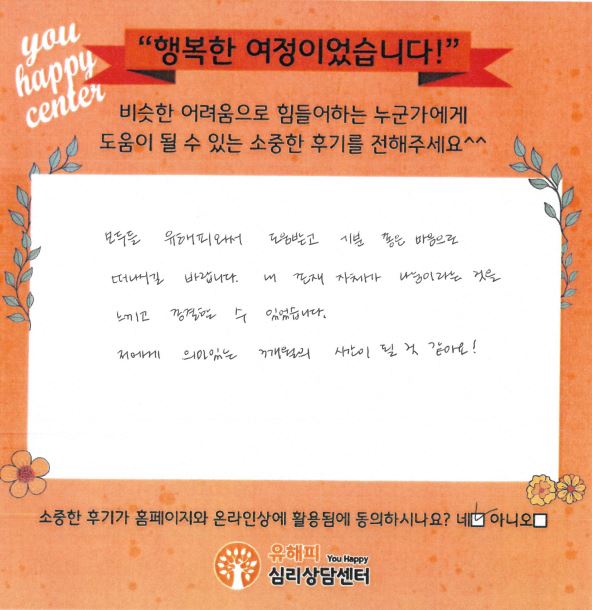 you
happy
center
“행복한 여정이었습니다!”
비슷한 어려움으로 힘들어하는 누군가에게
도움이 될 수 있는 소중한 후기를 전해주세요^^
모두들 유해피와서 도움받고 기분 좋은 마음으로
떠나시길 바랍니다. 내 존재 자체가 나라는 것을
느끼고 종결할 수 있었습니다.
저에게 의미있는 7개월의 시간이 될 것 같아요!
소중한 후기가 홈페이지와 온라인상에 활용됨에 동의하시나요? 네☑ 아니오☐
유해피 You Happy
심리상담센터